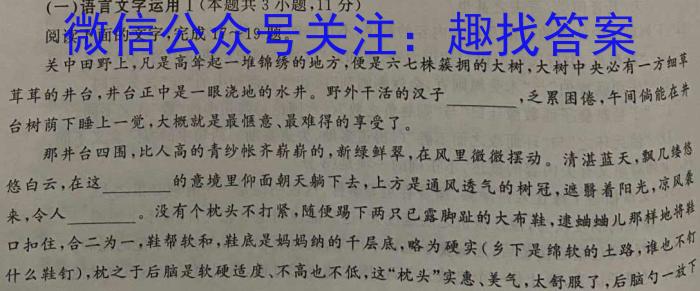 (一)语言文字运用Ⅰ(本题共3小题,11分)
阅读下面的文字,完成17~19题。
微信公众号关注：趣找答案
关中田野上,凡是高耸起一堆锦绣的地方,便是六七株簇拥的大树,大树中央必有一方细草
茸茸的井台,井台正中是一眼浇地的水井。野外干活的汉子________,乏累困倦,午间倘能在井
台树荫下睡上一觉,大概就是最惬意、最难得的享受了。
那井台四围,比人高的青纱帐齐崭崭的,新绿鲜翠,在风里微微摆动。清湛蓝天,飘几缕悠
悠白云,在这________的意境里仰面朝天躺下去,上方是通风透气的树冠,遮翳着阳光,凉风袭
来,令人________。没有个枕头不打紧,随便踢下两只已露脚趾的大布鞋,逮蛐蛐儿那样地将鞋
口扣住,合二为一,鞋帮软和,鞋底是妈妈纳的千层底,略为硬实(乡下是绵软的土路,谁也不钉
什么鞋钉),枕之于后脑是软硬适度、不高也不低,这“枕头”实惠、美气,太舒服了,后脑勺一放下